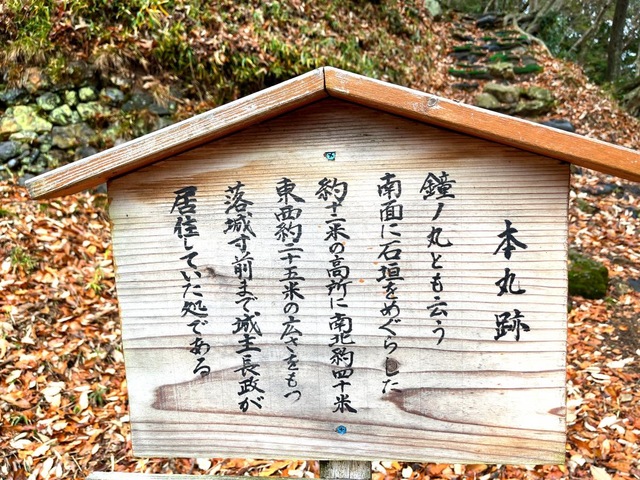 本丸跡
鐘ノ丸とも云う
南面に石垣をめぐらした
約十二米の高所に南北約四十米
東西約二十五米の広さをもつ
落城寸前まで城主長政が
居住していた処である